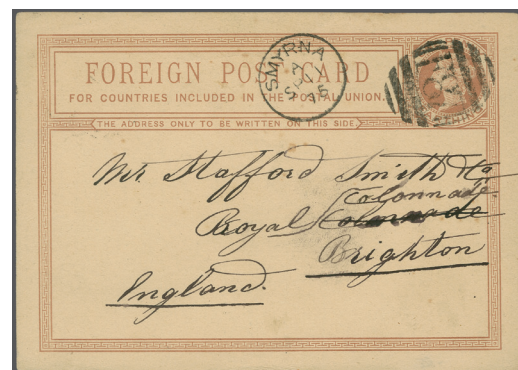 FOREIGN POST CARD
FOR COUNTRIES INCLUDED IN THE POSTAL UNION.
THE ADDRESS ONLY TO BE WRITTEN ON THIS SIDE
SMYRNA
Mr Stafford Smith & Co
Colonnade
Royal Colonnade
Brighton
England.